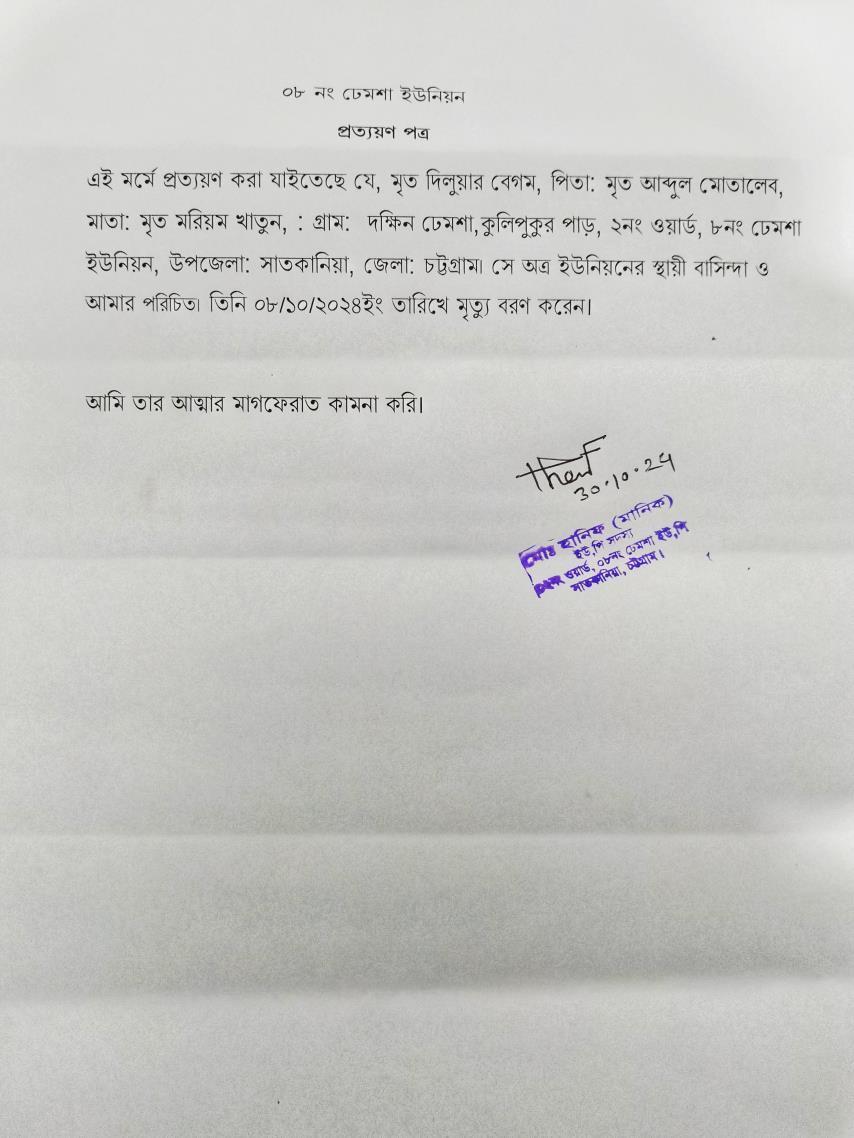 ০৮ নং ঢেমশা ইউনিয়ন
প্রত্যয়ণ পত্র
এই মর্মে প্রত্যয়ণ করা যাইতেছে যে, মৃত দিলুয়ার বেগম, পিতা: মৃত আব্দুল মোতালেব,
মাতা: মৃত মরিয়ম খাতুন, : গ্রাম: দক্ষিন ঢেমশা,কুলিপুকুর পাড়, ২নং ওয়ার্ড, ৮নং ঢেমশা
ইউনিয়ন, উপজেলা: সাতকানিয়া, জেলা: চট্টগ্রাম। সে অত্র ইউনিয়নের স্থায়ী বাসিন্দা ও
আমার পরিচিত। তিনি ০৮/১০/২০২৪ইং তারিখে মৃত্যু বরণ করেন।
আমি তার আত্মার মাগফেরাত কামনা করি।
30.10.24
মোঃ হানিফ (মানিক)
ইউ,পি সদস্য
ওয়ার্ড, ০৮নং ঢেমশা ইউ,পি
সাতকানিয়া, চট্টগ্রাম।